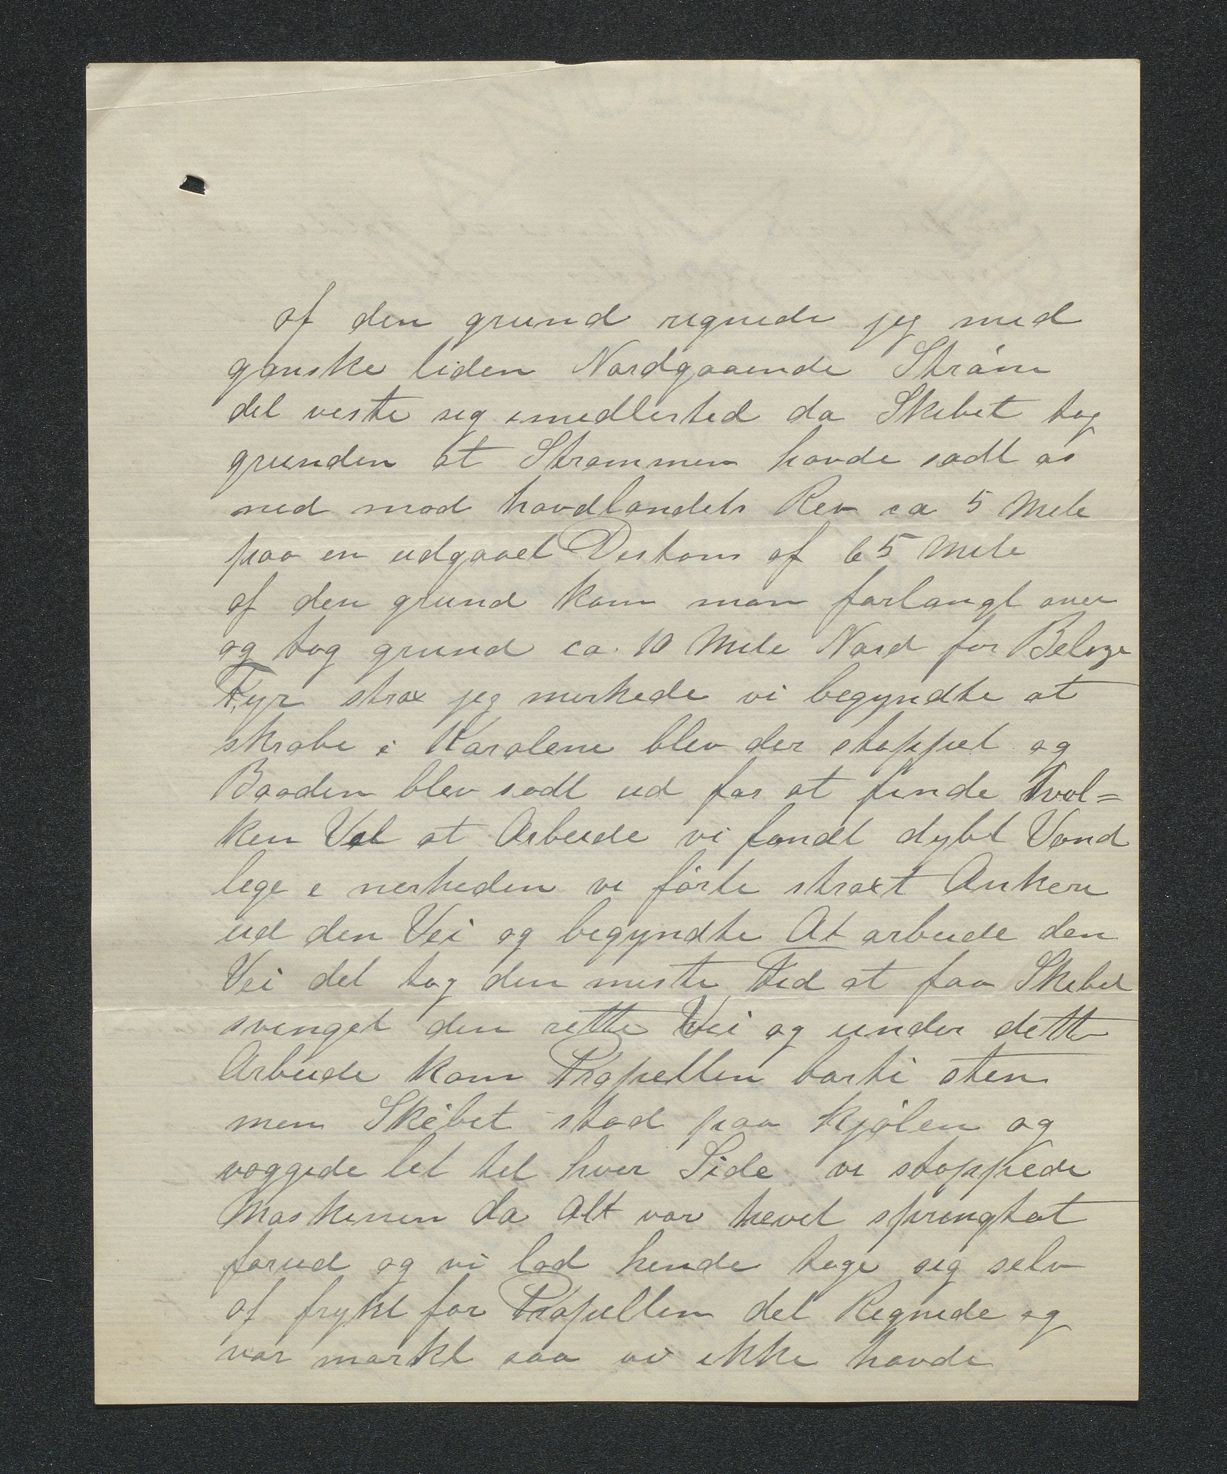 af den grund regnede jeg med
ganske liden Nordgaaende Strøm
det viste sig imedlertid da Skibet tog
grunden at Strømmen havde sadt os
ned mod havdlandets Rev ca 5 Mile
paa en udgaaet Distans af 65 Mile
af den grund kom man forlangt over
og tog grund ca. 10 Mile Nord for Belize
Fyr strax jeg merkede vi begyndte at
skrabe i Karalene blev der stoppet og
Baaden blev sadt ud for at finde hvil=
ken Vei at Arbeide vi fandt dybt Vand
lege i nerheden vi førte straxt Ankere
ud den Vei og begyndte At arbeide den
Vei det tog den meste Tid at faa Skibet
svinget den rette Vei og under dette
Arbeide kom Propellen borti sten
men Skibet stod paa kjølen og
vaggede let til hver Side. vi stoppede
Maskinen da Alt var hevet springtot
forud og vi lod hende tage sig selv
af frykt for Propellen det Regnede og
var mørkt saa vi ikke havde